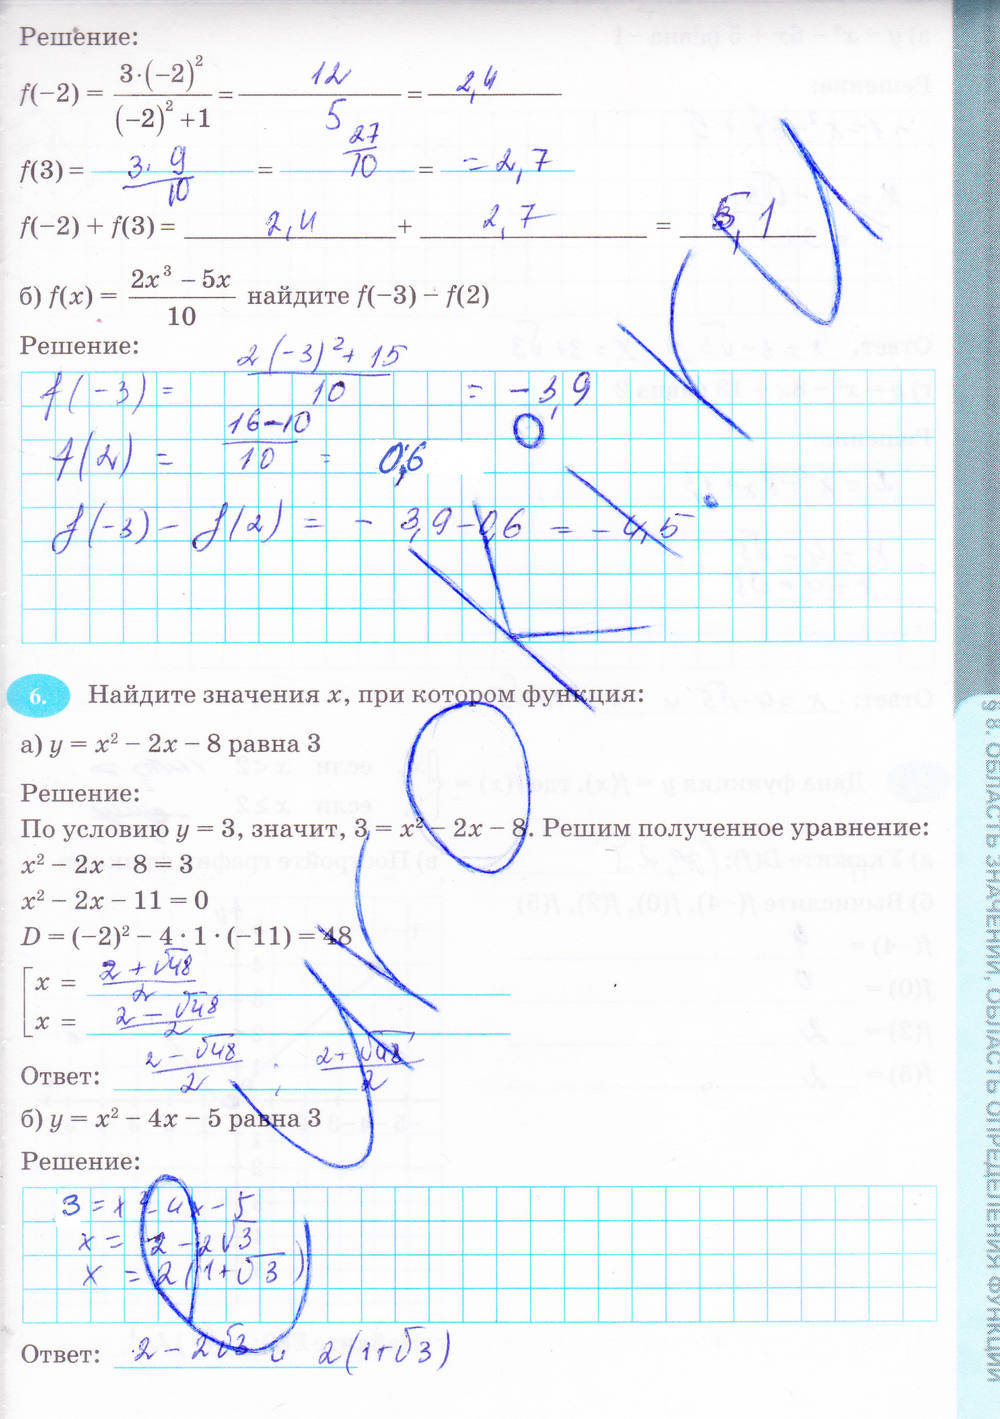 Решение:
f(−2) = (3·(−2)²)/((−2)² + 1) = 12/5 = 2,4
f(3) = 3·9/10 = 27/10 = = 2,7
f(−2) + f(3) = 2,4 + 2,7 = 5,1
б) f(x) = (2x³ − 5x)/10 найдите f(−3) − f(2)
Решение:
f(−3) = (2(−3)² + 15)/10 = −3,9
f(2) = (16−10)/10 = 0,6
f(−3) − f(2) = −3,9−0,6 = −4,5
6. Найдите значения x, при котором функция:
а) y = x² − 2x − 8 равна 3
Решение:
По условию y = 3, значит, 3 = x² − 2x − 8. Решим полученное уравнение:
x² − 2x − 8 = 3
x² − 2x − 11 = 0
D = (−2)² − 4 · 1 · (−11) = 48
x = (2 + √48)/2
x = (2 − √48)/2
Ответ: (2 − √48)/2 ; (2 + √48)/2
б) y = x² − 4x − 5 равна 3
Решение:
3 = x² − 4x − 5
x = 2 − 2√3
x = 2(1+√3)
Ответ: 2 − 2√3 и 2(1+√3)
§ 8. ОБЛАСТЬ ЗНАЧЕНИЙ, ОБЛАСТЬ ОПРЕДЕЛЕНИЯ ФУНКЦИИ